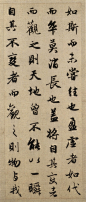 如斯而未嘗往也盈虛者如代
而卒莫消長也盖將自其變者
而觀之則天地曾不能以一瞬
自其不變者而觀之則物與我